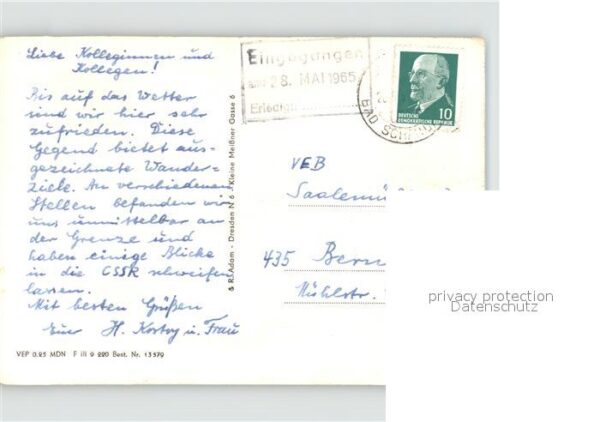 Liebe Kolleginnen und
Kollegen!
Bis auf das Wetter
sind wir hier sehr
zufrieden. Diese
Gegend bietet aus-
gezeichnete Wander-
ziele. An verschiedenen
Stellen befanden wir
uns unmittelbar an
der Grenze und
haben einige Blicke
in die CSSR schweifen
lassen.
Mit besten Grüßen
Euer H. u. Frau
VEP 0.25 MDN F III 9 220 Best. Nr. 13579
& R. Adam - Dresden N 6 - Kleine Meißner Gasse 6
Eingegangen
am 28. MAI 1965
Erledigt
BAD
DEUTSCHE
DEMOKRATISCHE REPUBLIK
10
VEB
435
Mühlstr.
privacy protection
Datenschutz